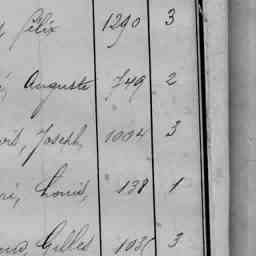 Félix 1290 3
Auguste 749 2
Joseph, 1004 3
Louis, 138 1
Gilles 103 3